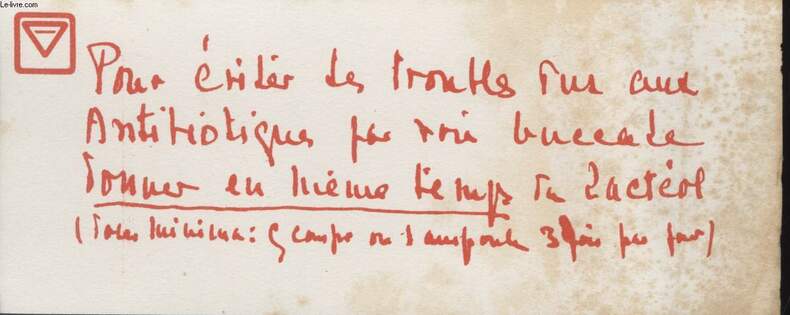 Le-livre.com
Pour éviter les troubles dus aux
Antibiotiques par voie buccale
Donner en même temps du Lactéol
(Doses minima: 5 comps ou 1 ampoule 3 fois par jour)